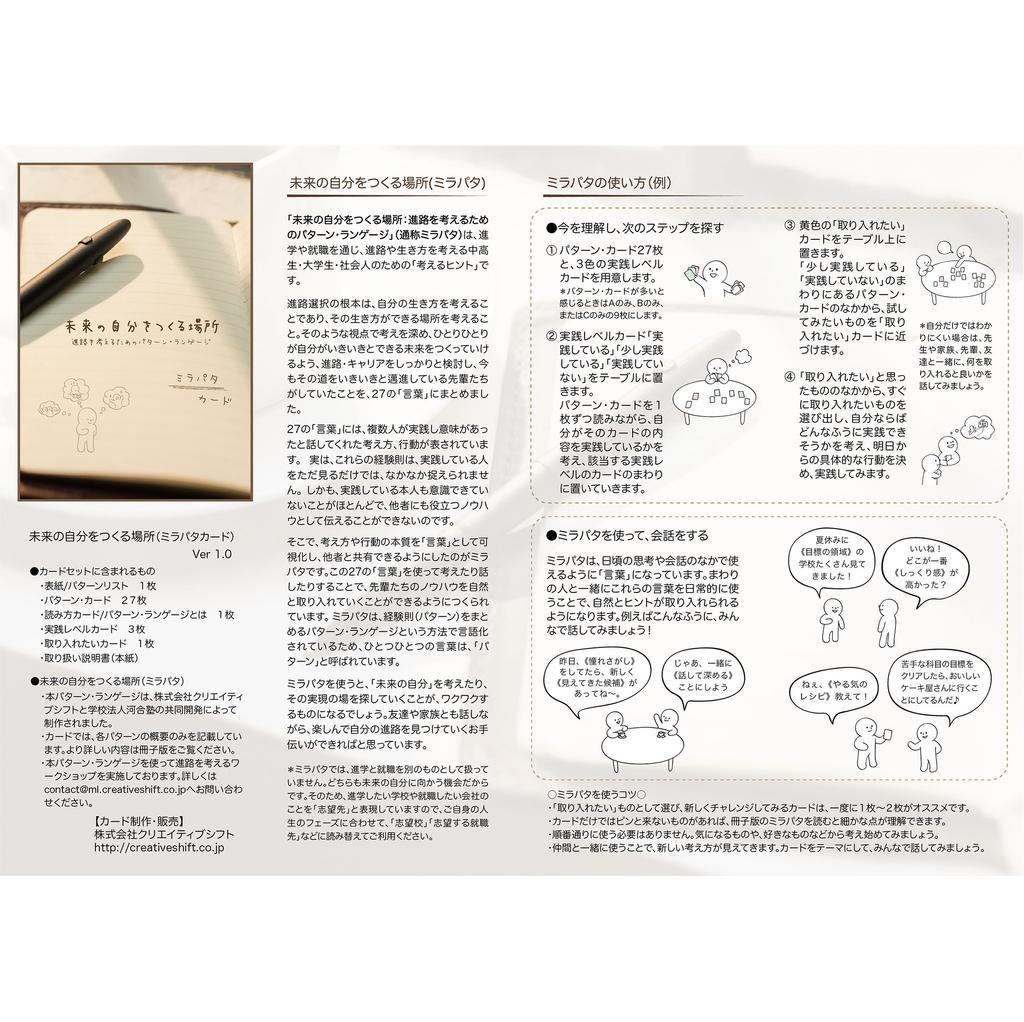 未来の自分をつくる場所
進路を考えるためのパターン・ランゲージ
ミラパタ
カード
未来の自分をつくる場所(ミラパタカード)
Ver 1.0
●カードセットに含まれるもの
・表紙/パターンリスト 1枚
・パターン・カード 27枚
・読み方カード/パターン・ランゲージとは 1枚
・実践レベルカード 3枚
・取り入れたいカード 1枚
・取り扱い説明書(本紙)
●未来の自分をつくる場所(ミラパタ)
・本パターン・ランゲージは、株式会社クリエイティ
ブシフトと学校法人河合塾の共同開発によって
制作されました。
・カードでは、各パターンの概要のみを記載してい
ます。より詳しい内容は冊子版をご覧ください。
・本パターン・ランゲージを使って進路を考えるワ
ークショップを実施しております。詳しくは
contact@ml.creativeshift.co.jpへお問い合わ
せください。
【カード制作・販売】
株式会社クリエイティブシフト
http://creativeshift.co.jp
未来の自分をつくる場所(ミラパタ)
「未来の自分をつくる場所:進路を考えるため
のパターン・ランゲージ」(通称ミラパタ)は、進
学や就職を通じ、進路や生き方を考える中高
生・大学生・社会人のための「考えるヒント」で
す。
進路選択の根本は、自分の生き方を考えるこ
とであり、その生き方ができる場所を考えるこ
と。そのような視点で考えを深め、ひとりひとり
が自分がいきいきとできる未来をつくっていけ
るよう、進路・キャリアをしっかりと検討し、今
もその道をいきいきと邁進している先輩たち
がしていたことを、27の「言葉」にまとめまし
た。
27の「言葉」には、複数人が実践し意味があっ
たと話してくれた考え方、行動が表されていま
す。 実は、これらの経験則は、実践している人
をただ見るだけでは、なかなか捉えられませ
ん。しかも、実践している本人も意識できてい
ないことがほとんどで、他者にも役立つノウハ
ウとして伝えることができないのです。
そこで、考え方や行動の本質を「言葉」として可
視化し、他者と共有できるようにしたのがミラ
パタです。この27の「言葉」を使って考えたり話
したりすることで、先輩たちのノウハウを自然
と取り入れていくことができるようにつくられ
ています。ミラパタは、経験則(パターン)をまと
めるパターン・ランゲージという方法で言語化
されているため、ひとつひとつの言葉は、「パ
ターン」と呼ばれています。
ミラパタを使うと、「未来の自分」を考えたり、
その実現の場を探していくことが、ワクワクす
るものになるでしょう。友達や家族とも話しな
がら、楽しんで自分の進路を見つけていくお手
伝いができればと思っています。
＊ミラパタでは、進学と就職を別のものとして扱って
いません。どちらも未来の自分に向かう機会だからで
す。そのため、進学したい学校や就職したい会社の
ことを「志望先」と表現していますので、ご自身の人
生のフェーズに合わせて、「志望校」「志望する就職
先」などに読み替えてご利用ください。
ミラパタの使い方(例)
●今を理解し、次のステップを探す
① パターン・カード27枚
と、3色の実践レベル
カードを用意します。
＊パターン・カードが多いと
感じるときはAのみ、Bのみ、
またはCのみの9枚にします。
② 実践レベルカード「実
践している」「少し実践
している」「実践してい
ない」をテーブルに置
きます。
パターン・カードを1
枚ずつ読みながら、自
分がそのカードの内
容を実践しているかを
考え、該当する実践レ
ベルのカードのまわり
に置いていきます。
③ 黄色の「取り入れたい」
カードをテーブル上に
置きます。
「少し実践している」
「実践していない」のま
わりにあるパターン・
カードのなかから、試し
てみたいものを「取り
入れたい」カードに近
づけます。
＊自分だけではわか
りにくい場合は、先
生や家族、先輩、友
達と一緒に、何を取
り入れると良いかを
話してみましょう。
④ 「取り入れたい」と思っ
たもののなかから、すぐ
に取り入れたいものを
選び出し、自分ならば
どんなふうに実践でき
そうかを考え、明日か
らの具体的な行動を決
め、実践してみます。
●ミラパタを使って、会話をする
ミラパタは、日頃の思考や会話のなかで使
えるように「言葉」になっています。まわり
の人と一緒にこれらの言葉を日常的に使
うことで、自然とヒントが取り入れられる
ようになります。例えばこんなふうに、みん
なで話してみましょう！
夏休みに
《目標の領域》の
学校たくさん見て
きました！
いいね！
どこが一番
《しっくり感》が
高かった？
昨日、《憧れさがし》
をしてたら、新しく
《見えてきた候補》が
あってね〜。
じゃあ、一緒に
《話して深める》
ことにしよう
ねぇ、《やる気の
レシピ》教えて！
苦手な科目の目標を
クリアしたら、おいしい
ケーキ屋さんに行くこ
とにしてるんだ♪
○ミラパタを使うコツ○
・「取り入れたい」ものとして選び、新しくチャレンジしてみるカードは、一度に1枚〜2枚がオススメです。
・カードだけではピンと来ないものがあれば、冊子版のミラパタを読むと細かな点が理解できます。
・順番通りに使う必要はありません。気になるものや、好きなものなどから考え始めてみましょう。
・仲間と一緒に使うことで、新しい考え方が見えてきます。カードをテーマにして、みんなで話してみましょう。